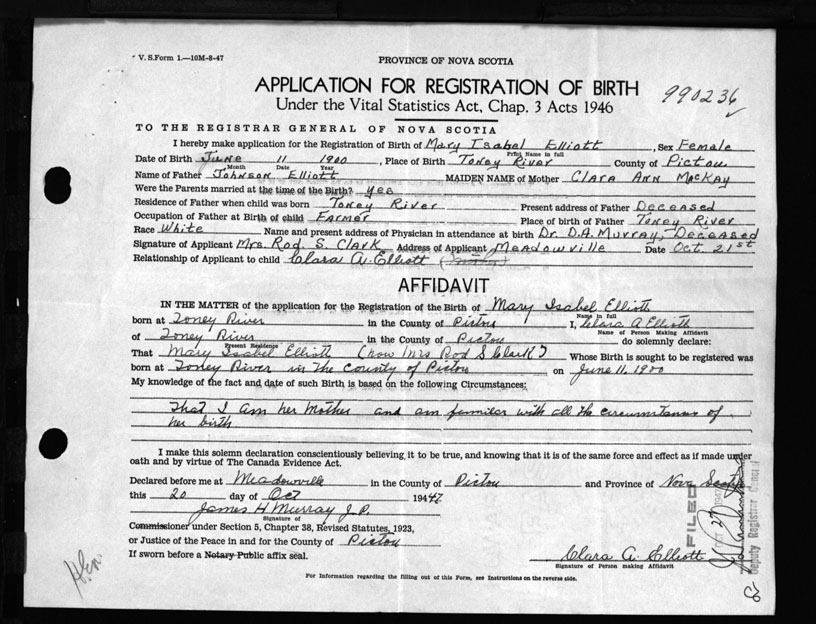 V. S. Form 1.—10M-8-47
PROVINCE OF NOVA SCOTIA
APPLICATION FOR REGISTRATION OF BIRTH
990236
Under the Vital Statistics Act, Chap. 3 Acts 1946
TO THE REGISTRAR GENERAL OF NOVA SCOTIA
I hereby make application for the Registration of Birth of Mary Isabel Elliott, Sex Female
Print Name in full
Date of Birth June 11 1900, Place of Birth Toney River County of Pictou
Month Date Year
Name of Father Johnson Elliott MAIDEN NAME of Mother Clara Ann MacKay
Were the Parents married at the time of the Birth? yes
Residence of Father when child was born Toney River Present address of Father Deceased
Occupation of Father at Birth of child Farmer Place of birth of Father Toney River
Race White Name and present address of Physician in attendance at birth Dr. D.A. Murray, Deceased
Signature of Applicant Mrs. Rod. S. Clark Address of Applicant Meadowville Date Oct. 21st
Relationship of Applicant to child Clara A. Elliott (Mother)
AFFIDAVIT
IN THE MATTER of the application for the Registration of the Birth of Mary Isabel Elliott
Name in full
born at Toney River in the County of Pictou I, Clara A Elliott
Name of Person Making Affidavit
of Toney River in the County of Pictou do solemnly declare:
Present Residence
That Mary Isabel Elliott (now Mrs Rod S Clark) Whose Birth is sought to be registered was
born at Toney River in the County of Pictou on June 11, 1900
My knowledge of the fact and date of such Birth is based on the following Circumstances:
That I am her Mother and am familer with all the circumstances of
her birth
I make this solemn declaration conscientiously believing it to be true, and knowing that it is of the same force and effect as if made under
oath and by virtue of The Canada Evidence Act.
Declared before me at Meadowville in the County of Pictou and Province of Nova Scotia
this 20 day of Oct 1947
James H Murray J.P.
Signature of
Commissioner under Section 5, Chapter 38, Revised Statutes, 1923,
or Justice of the Peace in and for the County of Pictou
If sworn before a Notary Public affix seal.
Clara A. Elliott
Signature of Person making Affidavit
For Information regarding the filling out of this Form, see Instructions on the reverse side.
FILED
OCT 27 1947
Deputy Registrar General